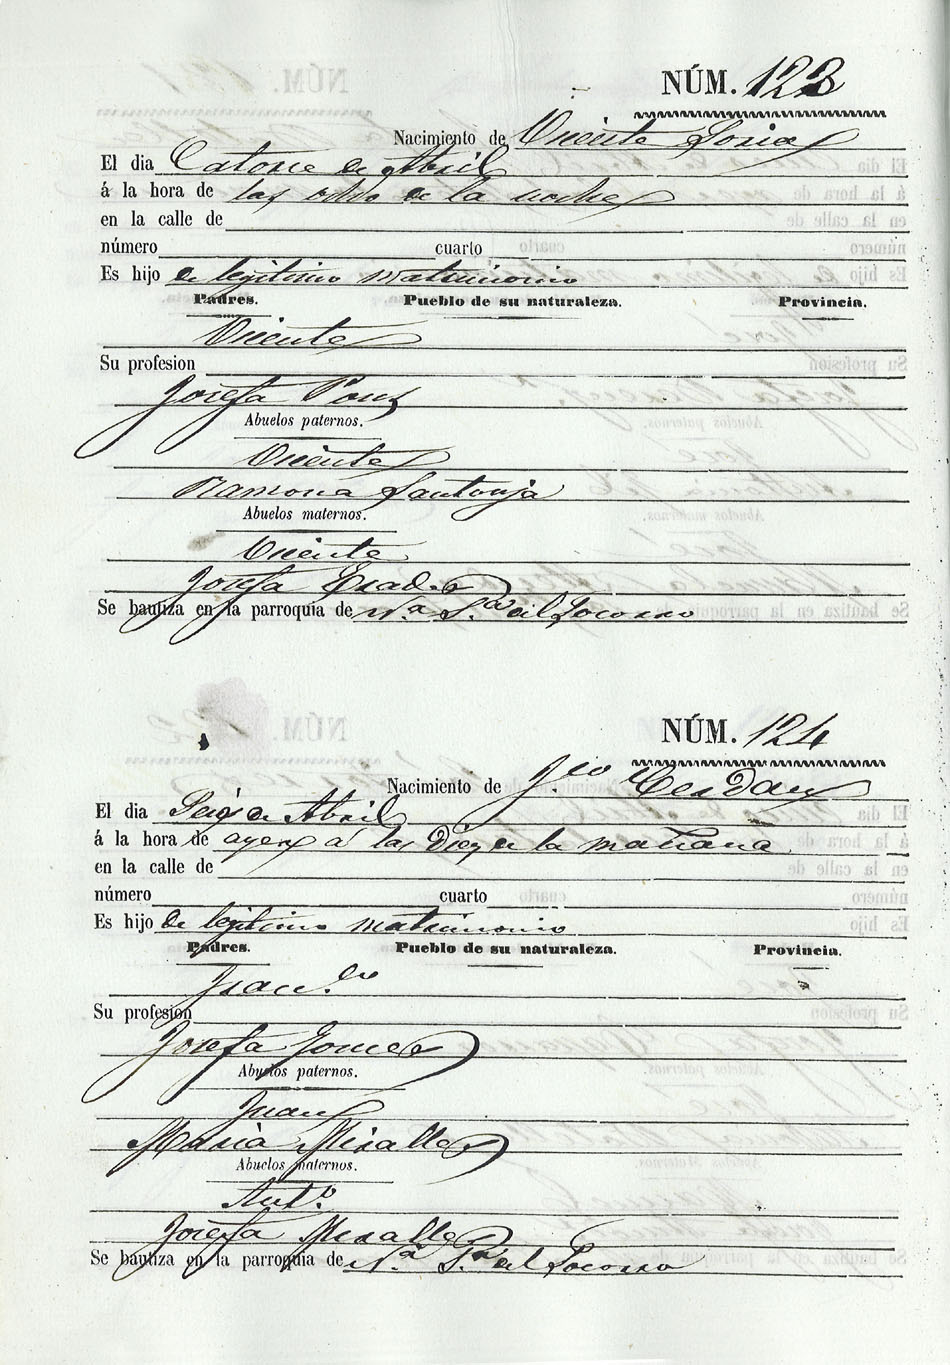 NÚM. 123
Nacimiento de Vicente Soria
El dia Catorse de Abril
á la hora de las ocho de la noche
en la calle de
número cuarto
Es hijo de legitimo matrimonio
Padres. Pueblo de su naturaleza. Provincia.
Vicente
Su profesion
Josefa Pons
Abuelos paternos.
Vicente
Ramona Santonja
Abuelos maternos.
Vicente
Josefa
Se bautiza en la parroquia de Nª Sª del Socorro
NÚM. 124
Nacimiento de Fco Cerdan
El dia Seis de Abril
á la hora de ayer á las Diez de la mañana
en la calle de
número cuarto
Es hijo de legitimo matrimonio
Padres. Pueblo de su naturaleza. Provincia.
Franco
Su profesion
Josefa Gomes
Abuelos paternos.
Juan
Maria Miralles
Abuelos maternos.
Anto
Josefa Miralles
Se bautiza en la parroquia de Nª Sª del Socorro